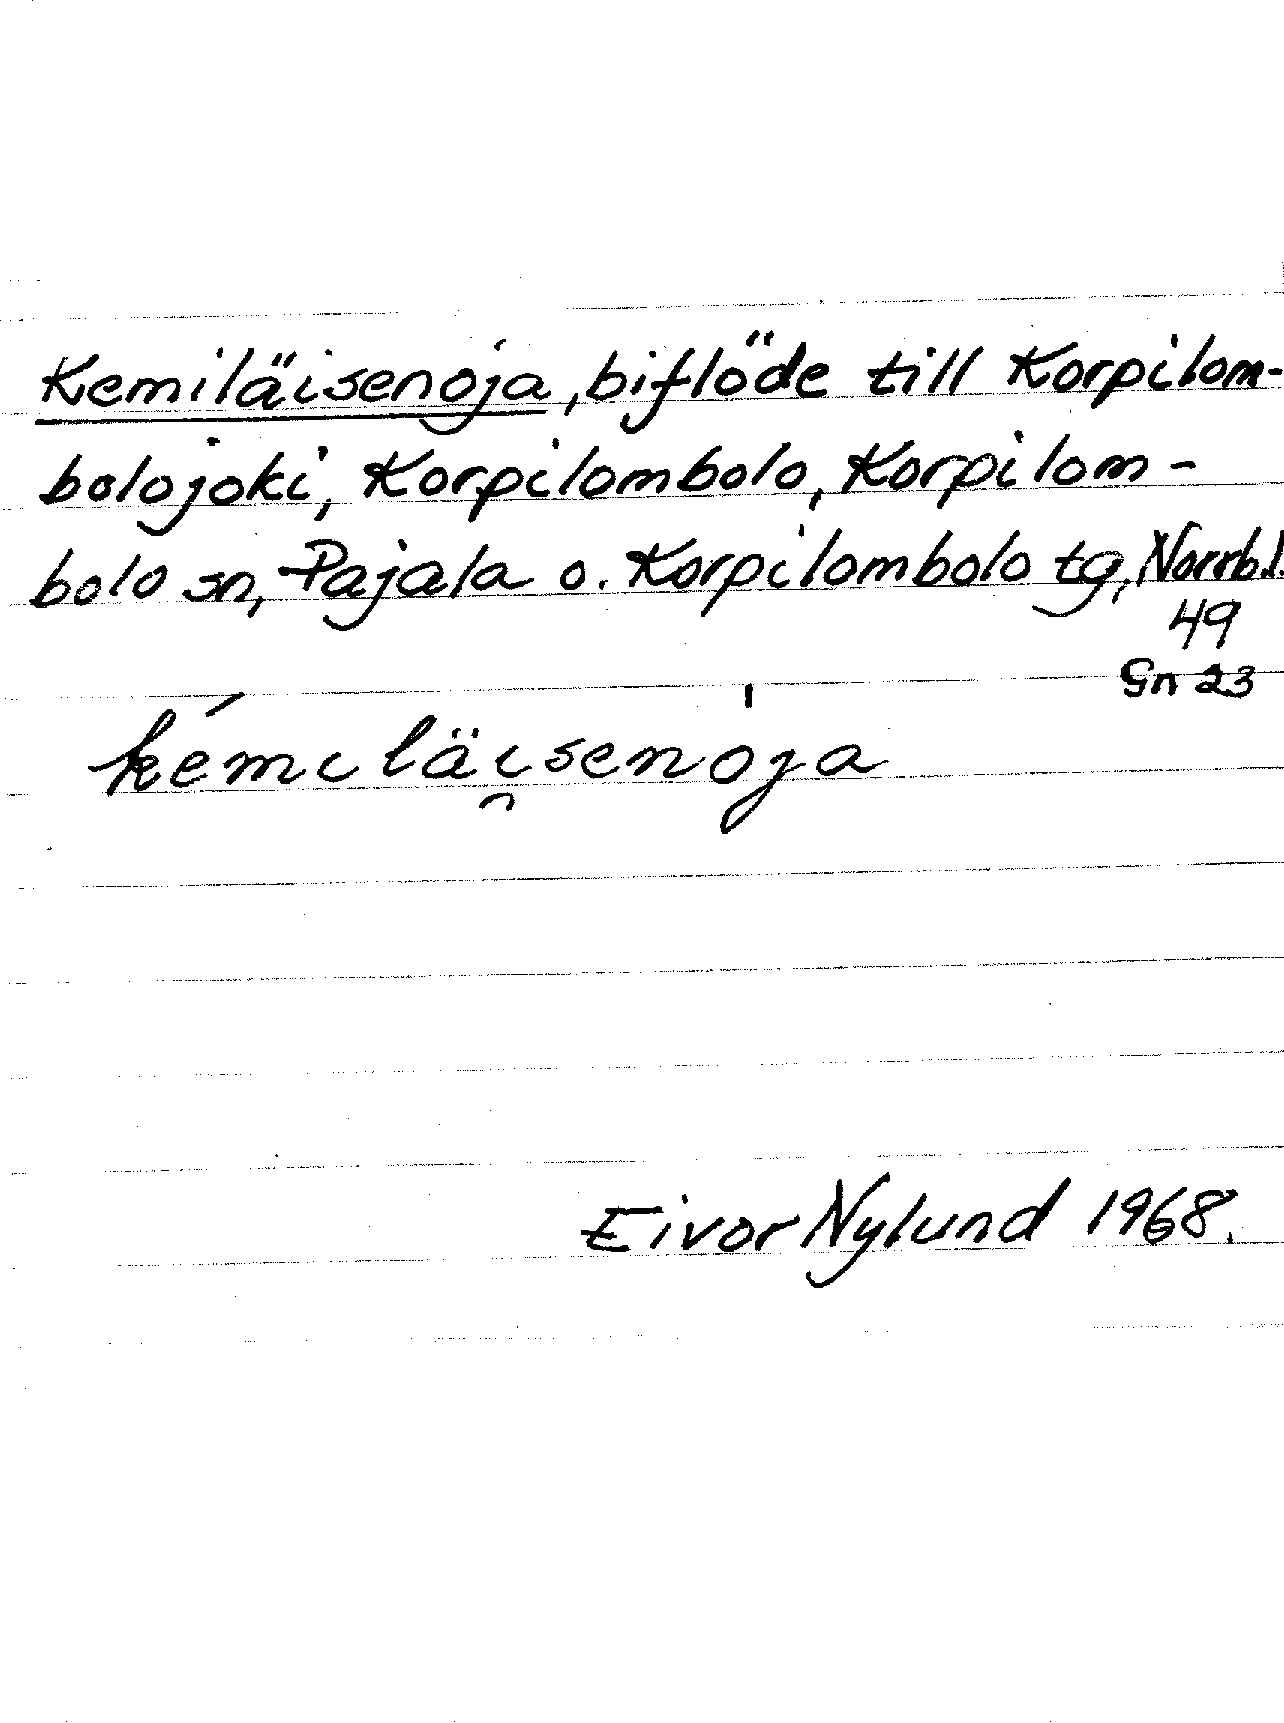 Kemiläisenoja, biflöde till Korpilom-
bolojoki, Korpilombolo, Korpilom-
bolo sn, Pajala o. Korpilombolo tg, Norrb.l.
49
Gn 23
kémiläi̯senòja
Eivor Nylund 1968.